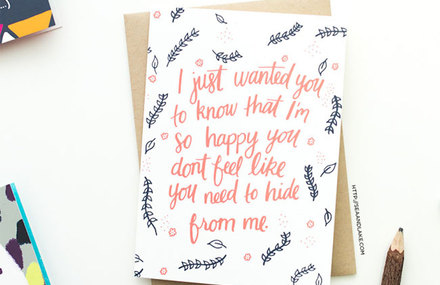 I just wanted you
to know that I'm
so happy you
dont feel like
you need to hide
from me.
HTTP://SEAANDLAKE.COM